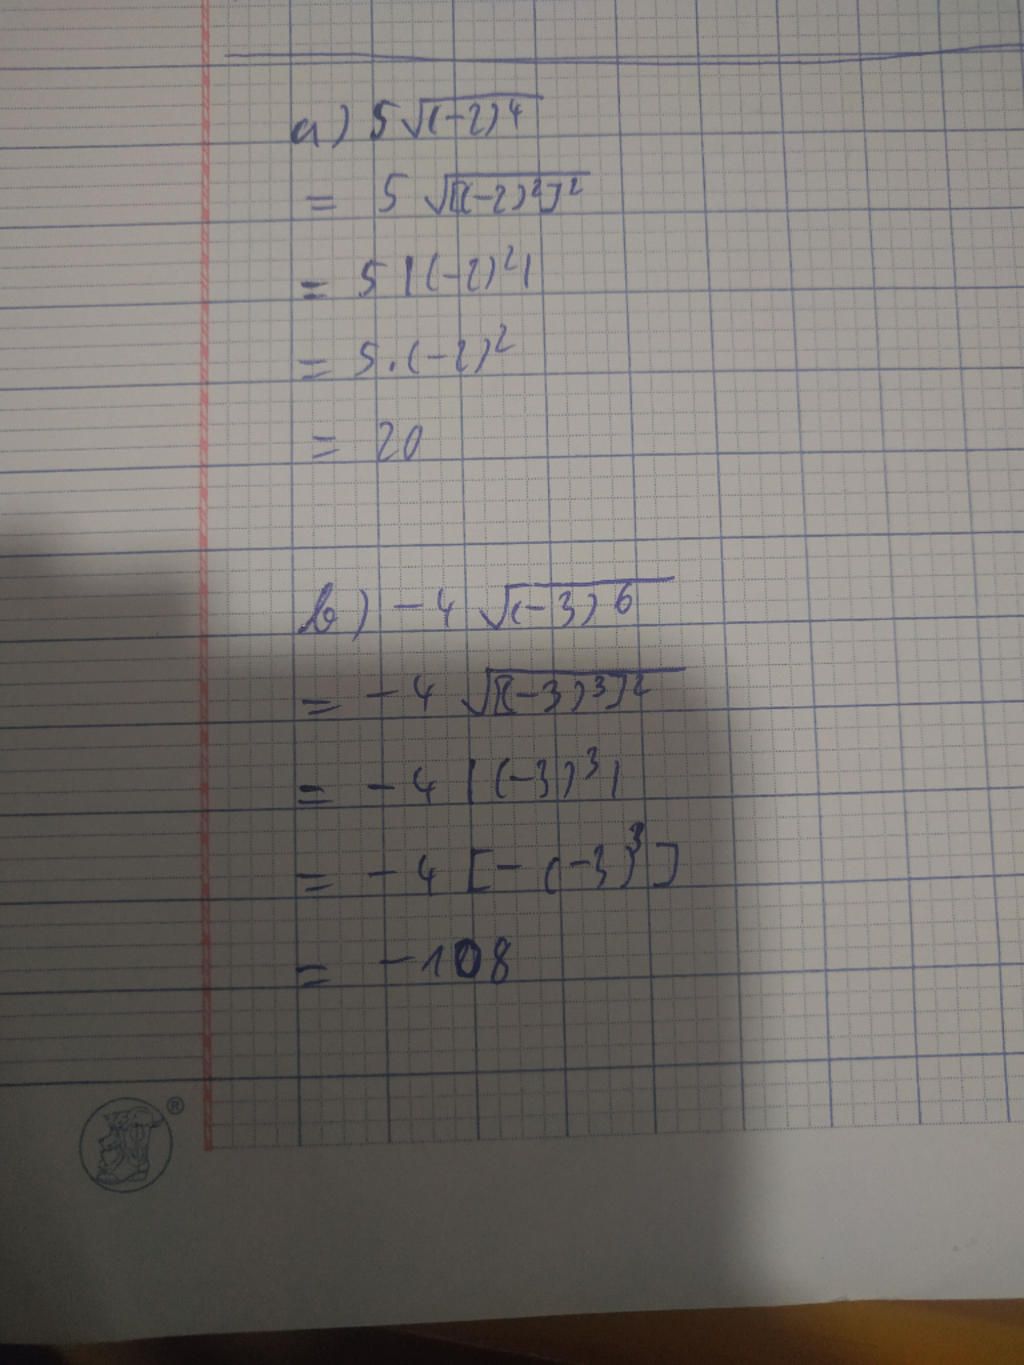 a) 5√(-2)⁴
= 5 √[(-2)²]²
= 5 |(-2)²|
= 5.(-2)²
= 20
b) -4 √(-3)⁶
= -4 √[(-3)³]²
= -4 |(-3)³|
= -4 [-(-3)³]
= -108
®